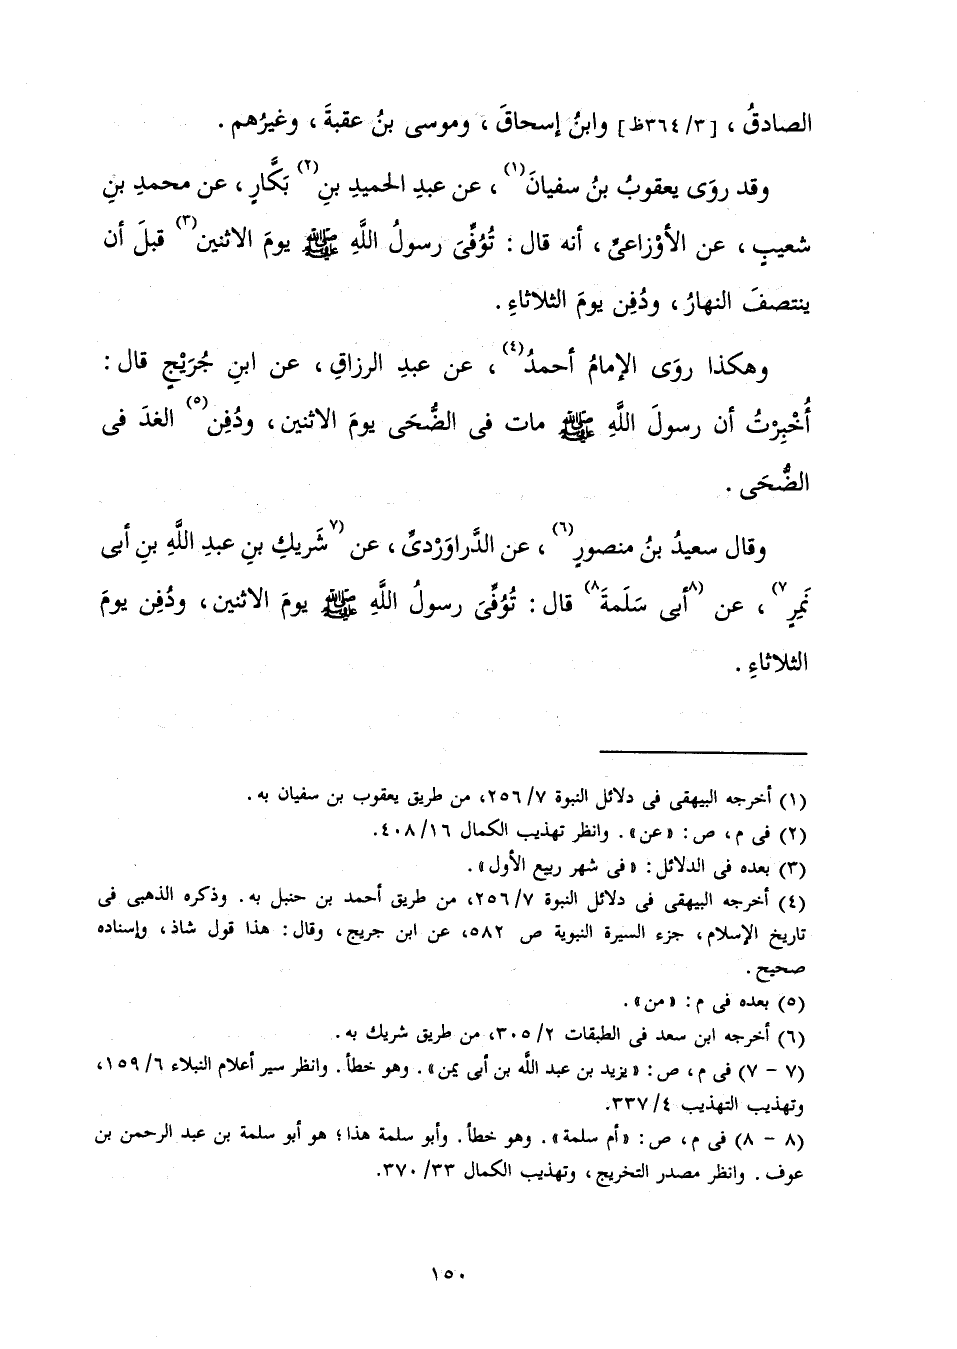 الصادقُ ، [٣/ ٣٦٤ظ] وابنُ إسحاقَ ، وموسى بنُ عقبةَ ، وغيرُهم .
وقد روَى يعقوبُ بنُ سفيانَ(١) ، عن عبدِ الحميدِ بنِ(٢) بَكَّارٍ ، عن محمدِ بنِ
شعيبٍ ، عن الأوْزاعىِّ ، أنه قال : تُوُفِّىَ رسولُ اللَّهِ ﷺ يومَ الاثنين(٣) قبلَ أن
ينتصفَ النهارُ ، ودُفِن يومَ الثلاثاءِ .
وهكذا روَى الإمامُ أحمدُ(٤) ، عن عبدِ الرزاقِ ، عن ابنِ جُرَيْجٍ قال :
أُخْبِرْتُ أن رسولَ اللَّهِ ﷺ مات فى الضُّحَى يومَ الاثنين ، ودُفِن(٥) الغدَ فى
الضُّحَى .
وقال سعيدُ بنُ منصورٍ(٦) ، عن الدَّراوَرْدىِّ ، عن (٧شَريكِ بنِ عبدِ اللَّهِ بنِ أبى
نَمِرٍ٧) ، عن (٨أبى سَلَمةَ٨) قال : تُوُفِّىَ رسولُ اللَّهِ ﷺ يومَ الاثنين ، ودُفِن يومَ
الثلاثاءِ .
(١) أخرجه البيهقى فى دلائل النبوة ٧/ ٢٥٦، من طريق يعقوب بن سفيان به .
(٢) فى م ، ص : « عن » . وانظر تهذيب الكمال ١٦/ ٤٠٨.
(٣) بعده فى الدلائل : « فى شهر ربيع الأول » .
(٤) أخرجه البيهقى فى دلائل النبوة ٧/ ٢٥٦، من طريق أحمد بن حنبل به . وذكره الذهبى فى
تاريخ الإسلام ، جزء السيرة النبوية ص ٥٨٢، عن ابن جريج ، وقال : هذا قول شاذ ، وإسناده
صحيح .
(٥) بعده فى م : « من » .
(٦) أخرجه ابن سعد فى الطبقات ٢/ ٣٠٥، من طريق شريك به .
(٧ - ٧) فى م ، ص : « يزيد بن عبد الله بن أبى يمن » . وهو خطأ . وانظر سير أعلام النبلاء ٦/ ١٥٩،
وتهذيب التهذيب ٤/ ٣٣٧.
(٨ - ٨) فى م ، ص : « أم سلمة » . وهو خطأ . وأبو سلمة هذا ؛ هو أبو سلمة بن عبد الرحمن بن
عوف . وانظر مصدر التخريج ، وتهذيب الكمال ٣٣/ ٣٧٠.
١٥٠